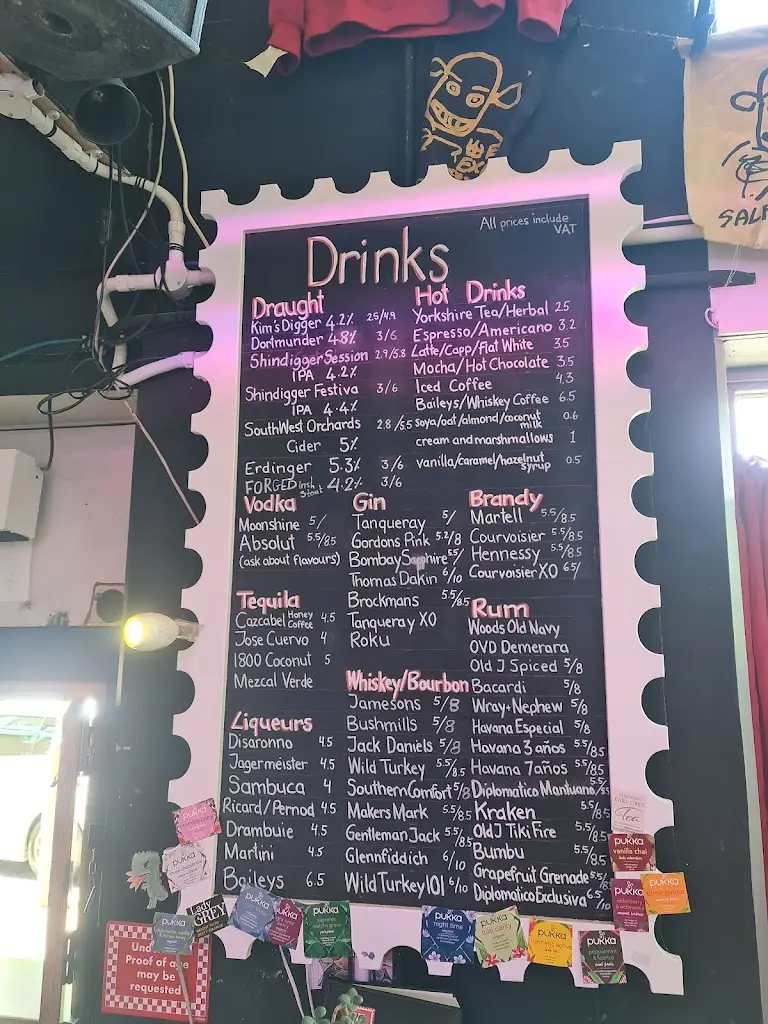 All prices include
VAT
Drinks
Draught
Kim's Digger 4.2% 2.5/4.9
Dortmunder 4.8% 3/6
Shindigger Session 2.9/5.8
IPA 4.2%
Shindigger Festiva 3/6
IPA 4.4%
SouthWest Orchards 2.8/5.5
Cider 5%
Erdinger 5.3% 3/6
FORGED Irish Stout 4.2% 3/6
Hot Drinks
Yorkshire Tea/Herbal 2.5
Espresso/Americano 3.2
Latte/Capp/Flat White 3.5
Mocha/Hot Chocolate 3.5
Iced Coffee 4.3
Baileys/Whiskey Coffee 6.5
soya/oat/almond/coconut milk 0.6
cream and marshmallows 1
vanilla/caramel/hazelnut syrup 0.5
Vodka
Moonshine 5/
Absolut 5.5/8.5
(ask about flavours)
Tequila
Cazcabel Honey Coffee 4.5
Jose Cuervo 4
1800 Coconut 5
Mezcal Verde
Liqueurs
Disaronno 4.5
Jagermeister 4.5
Sambuca 4
Ricard/Pernod 4.5
Drambuie 4.5
Martini 4.5
Baileys 6.5
Gin
Tanqueray 5/
Gordons Pink 5.2/8
Bombay Sapphire
Thomas Dakin 6/10
Brockmans 5.5/8.5
Tanqueray XO
Roku
Whiskey/Bourbon
Jamesons 5/8
Bushmills 5/8
Jack Daniels 5/8
Wild Turkey 5.5/8.5
Southern Comfort 5/8
Makers Mark 5.5/8.5
Gentleman Jack 5.5/8.5
Glennfiddich 6/10
Wild Turkey 101 6/10
Brandy
Martell 5.5/8.5
Courvoisier 5.5/8.5
Hennessy 5.5/8.5
Courvoisier XO 6.5/
Rum
Woods Old Navy
OVD Demerara
Old J Spiced 5/8
Bacardi 5/8
Wray+Nephew 5/8
Havana Especial 5/8
Havana 3 años 5.5/8.5
Havana 7 años 5.5/8.5
Diplomatico Mantuano 5.5/8.5
Kraken 5.5/8.5
Old J Tiki Fire 5.5/8.5
Bumbu 5.5/8.5
Grapefruit Grenade 5.5/8.5
Diplomatico Exclusiva 6.5/10
pukka
pukka
pukka
Lady
GREY
pukka
pukka
pukka
supreme
matcha green
pukka
night time
pukka
pukka
pukka
peppermint
& licorice
Tea
pukka
vanilla chai
pukka
pukka
elderberry
& echinacea
Proof of age
may be
requested